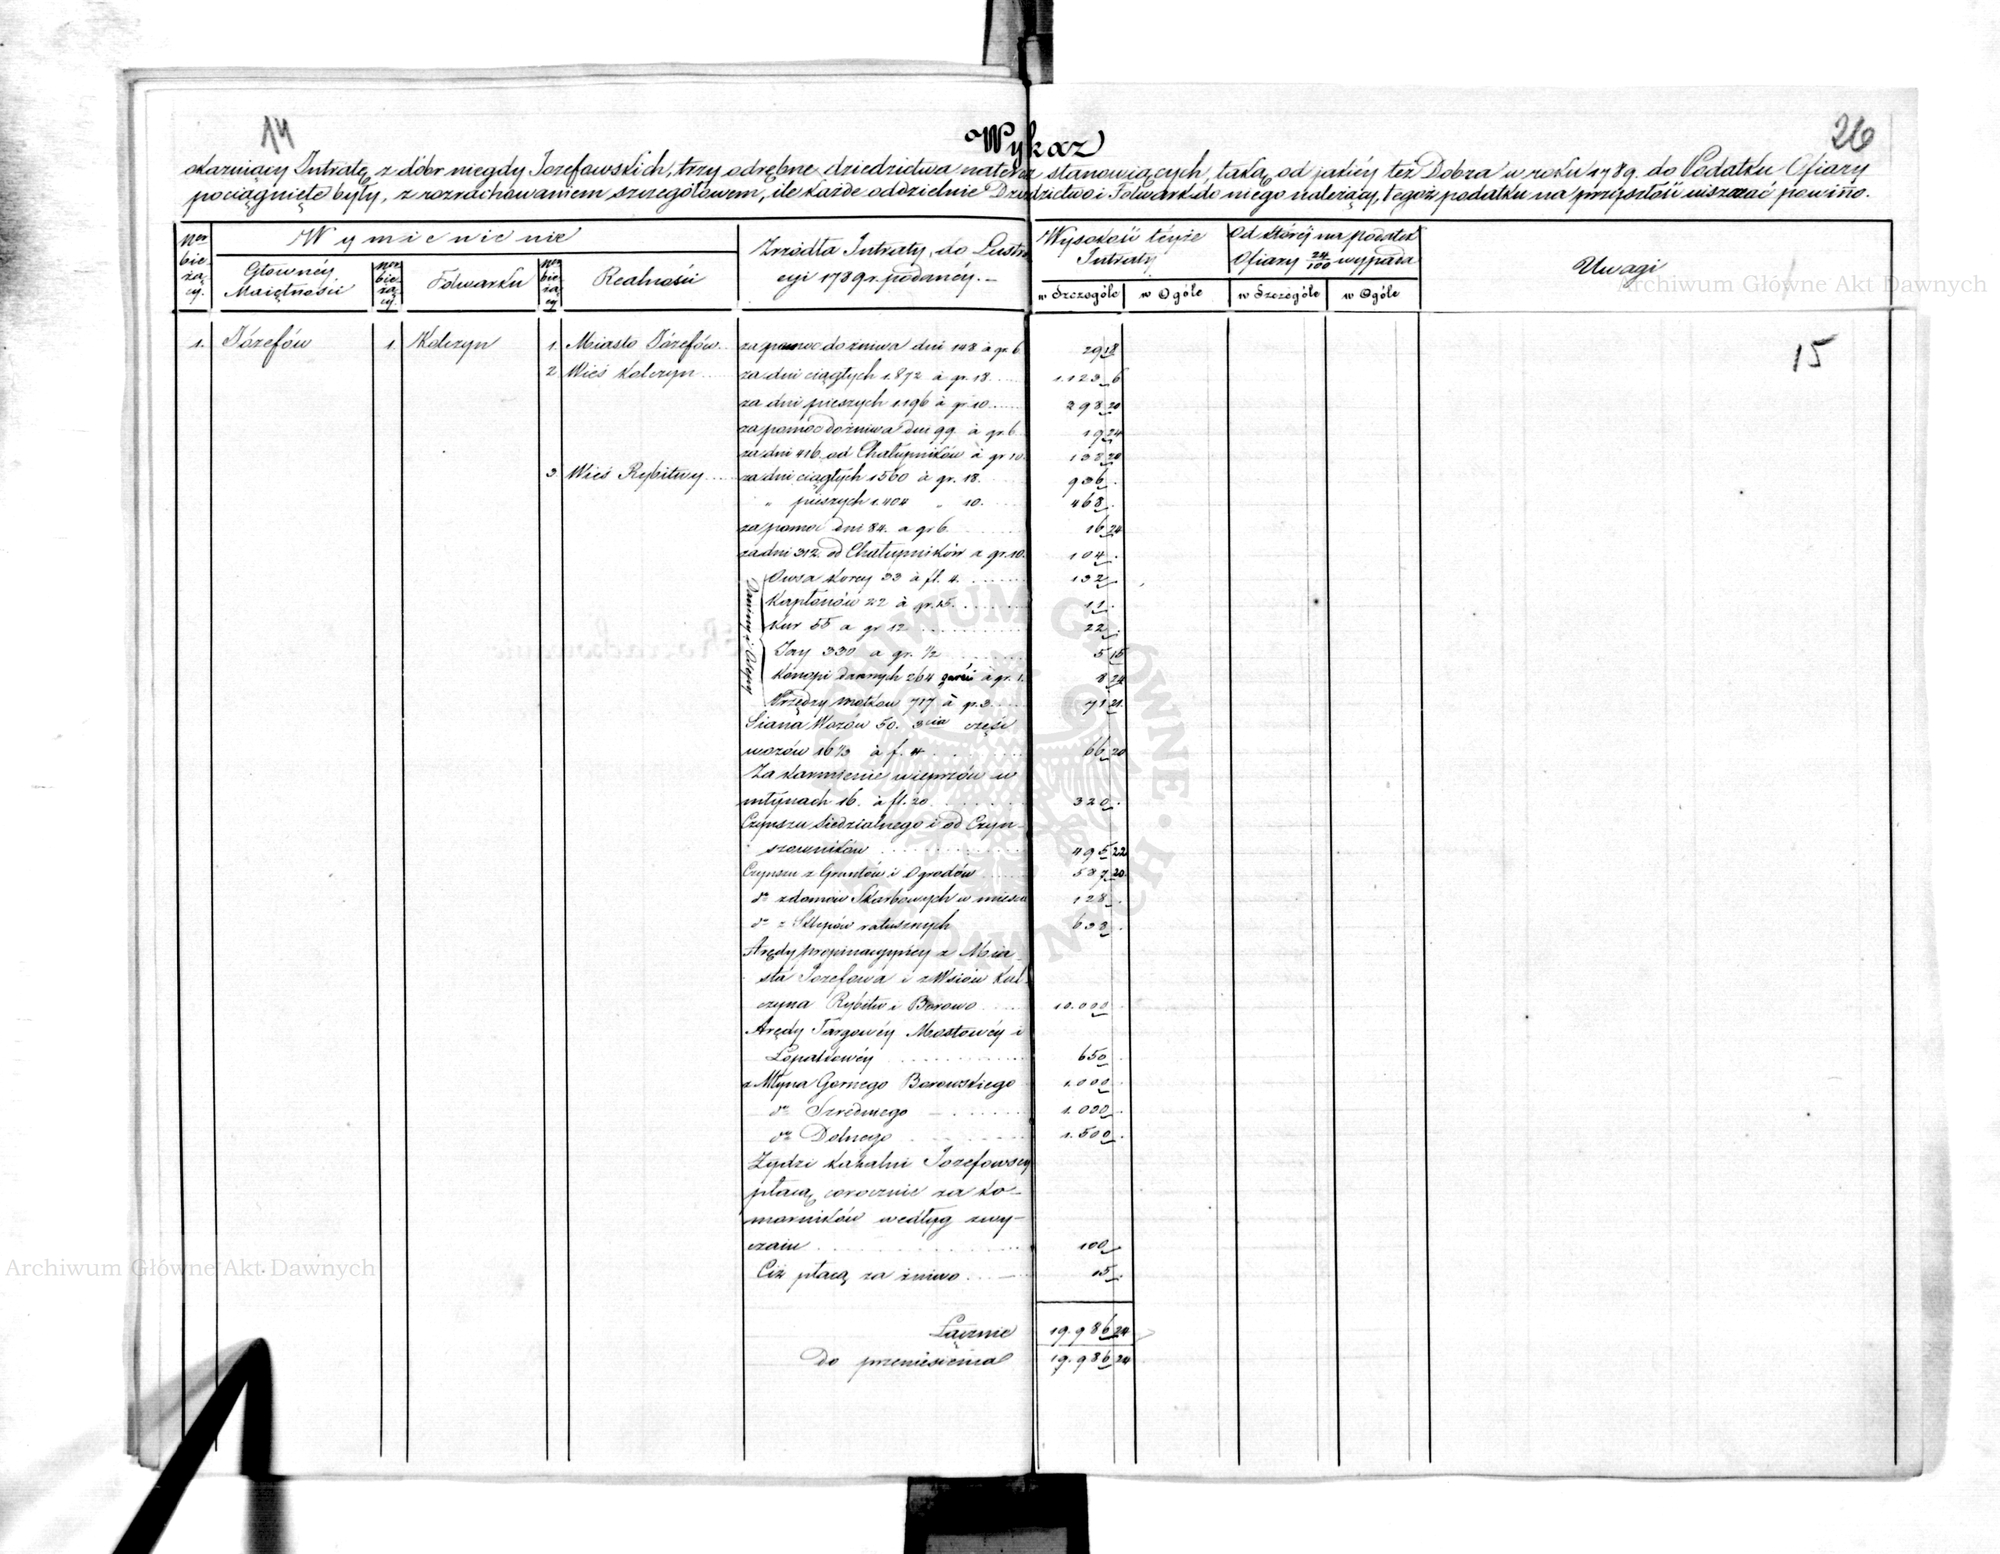 14
26
Wykaz
okazuiący Intratę z dóbr niegdy Jozefowskich, trzy odrębne dziedzictwa naten stanowiących, taką od jakiéy też Dobra w roku 1789 do Podatku Ofiary
pociągnięte były, z rozrachowaniem szczegółowem, ile każde oddzielnie Dziedzictwo i Folwark do niego należący, tegoż podatku na przyszłość uiszczać powinno.
Wymienienie
Zrzódła Intraty, do Lustra
cyi 1789 r. podanéy.
Wysokość téyże
Intraty
Od któréj na podatek
Ofiary 24/100 wypada
Uwagi
Ner
bie
żą
cy.
Głownéy
Maiętności
Ner
bie
żą
cy.
Folwarku
Ner
bie
żą
cy
Realności
w Szczególe
w Ogóle
w Szczególe
w Ogóle
1. Józefów 1. Kolczyn 1. Miasto Józefów za pomoc do żniwa dni 148 à gr 6. 29 18
15
2 Wieś Kolczyn za dni ciągłych 1.872 à gr. 18. 1.123 6
za dni pieszych 1196 à gr 10 398 20
za pomoc do żniwa dni 99. à gr 6 19 24
za dni 416 od Chałupników à gr 10. 138 20
3. Wieś Rybitwy za dni ciągłych 1560 à gr. 18. 936
" pieszych 1.404 " 10. 468
za pomoc dni 84. a gr 6. 16 24
za dni 312. od Chałupników a gr. 10. 104
Daniny i Osepy
Owsa korcy 33 à fl. 4. 132
Kapłonów 22 à gr. 15. 11
Kur 55 a gr 12 22
Jay 330 a gr. 1/2 5 15
Konopi dannych 264 garści à gr. 1. 8 24
Przędzy motków 717 à gr. 3. 71 21
Siana Wozów 50. 3cia część
wozów 16 2/3 à f. 4 66 20
Za karmienie wieprzów w
młynach 16. à fl. 20 320
Czynszu siedzialnego i od Czyn
szowników 495 22
Czynszu z Gruntów i Ogrodów 587 20
do z domów Skarbowych w mieście 128
do z Sklepów ratusznych 638
Arędy propinacyjnéy z Mia
sta Jozefowa i z Wsiów Kol
czyna Rybitw i Borowo 10.000
Arędy Targowéy Mostowéy i
Łopatkowéy 650
z Młyna Gornego Borowskiego 1.000
do Szredniego 1.000
do Dolnego 1.500
Żydzi kahalni Jozefowscy
płacą corocznie za ko-
morników według zwy-
czaiu 100
Ciż płacą za żniwo 15
Łącznie 19.986 24
Do przeniesienia 19.986 24
Archiwum Główne Akt Dawnych
Archiwum Główne Akt Dawnych
ARCHIWUM GŁÓWNE • AKT DAWNYCH